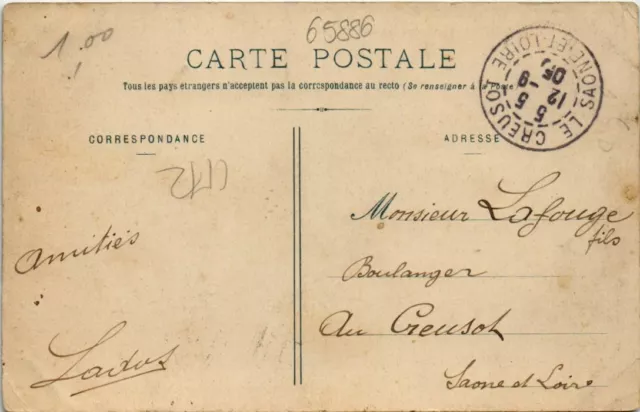 1.00
65886
CARTE POSTALE
Tous les pays étrangers n'acceptent pas la correspondance au recto (Se renseigner à la Poste)
CORRESPONDANCE
ADRESSE
LE CREUSOT SAONE-ET-LOIRE
Monsieur Lafouge
fils
Boulanger
Au Creusot
Saone et Loire
Amitiés